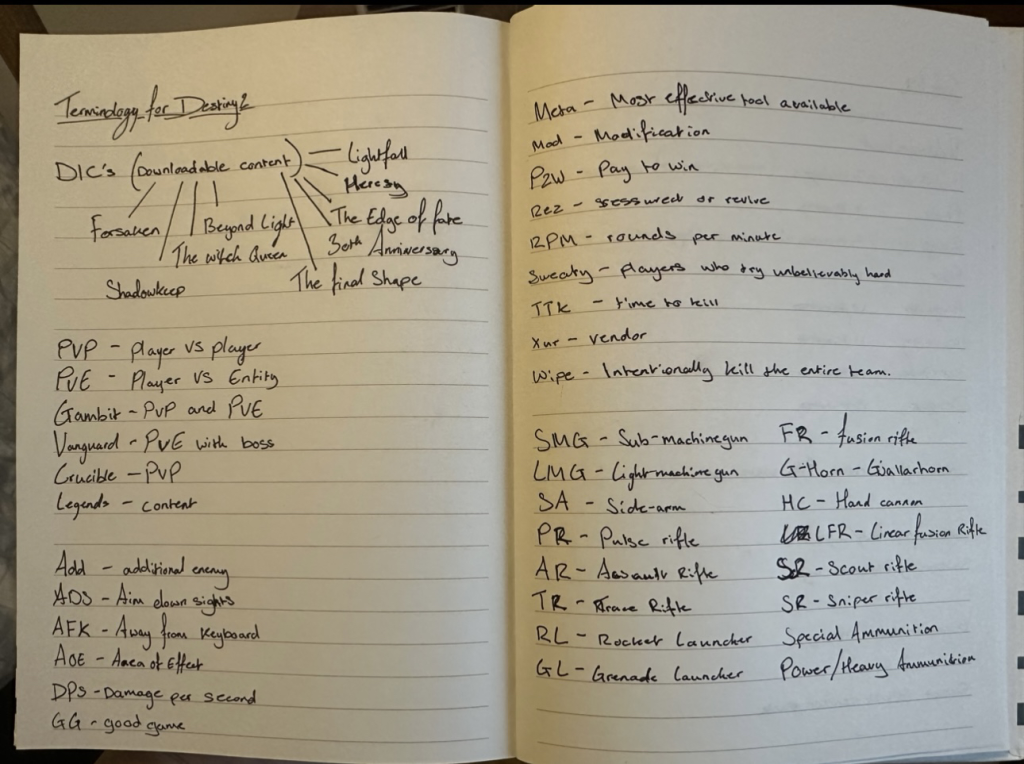 Terminology for Destiny 2
DLC's (Downloadable content)
Lightfall
Heresy
The Edge of fate
30th Anniversary
The final Shape
Beyond Light
The witch Queen
Forsaken
Shadowkeep
PVP - player vs player
PvE - Player VS Entity
Gambit - PvP and PVE
Vanguard - PvE with boss
Crucible - PvP
Legends - content
Add - additional enemy
ADS - Aim down sights
AFK - Away from Keyboard
AOE - Area of Effect
DPS - Damage per second
GG - good game
Meta - Most effective tool available
Mod - Modification
P2W - Pay to win
Rez - or revive
RPM - rounds per minute
Sweaty - players who try unbelievably hard
TTK - time to kill
Xur - vendor
Wipe - Intentionally kill the entire team.
SMG - Sub-machinegun
LMG - Light machine gun
SA - Side-arm
PR - Pulse rifle
AR - Assault Rifle
TR - Trace Rifle
RL - Rocket Launcher
GL - Grenade Launcher
FR - fusion rifle
G-Horn - Gjallarhorn
HC - Hand cannon
LFR - Linear fusion Rifle
SR - Scout rifle
SR - Sniper rifle
Special Ammunition
Power/Heavy Ammunition